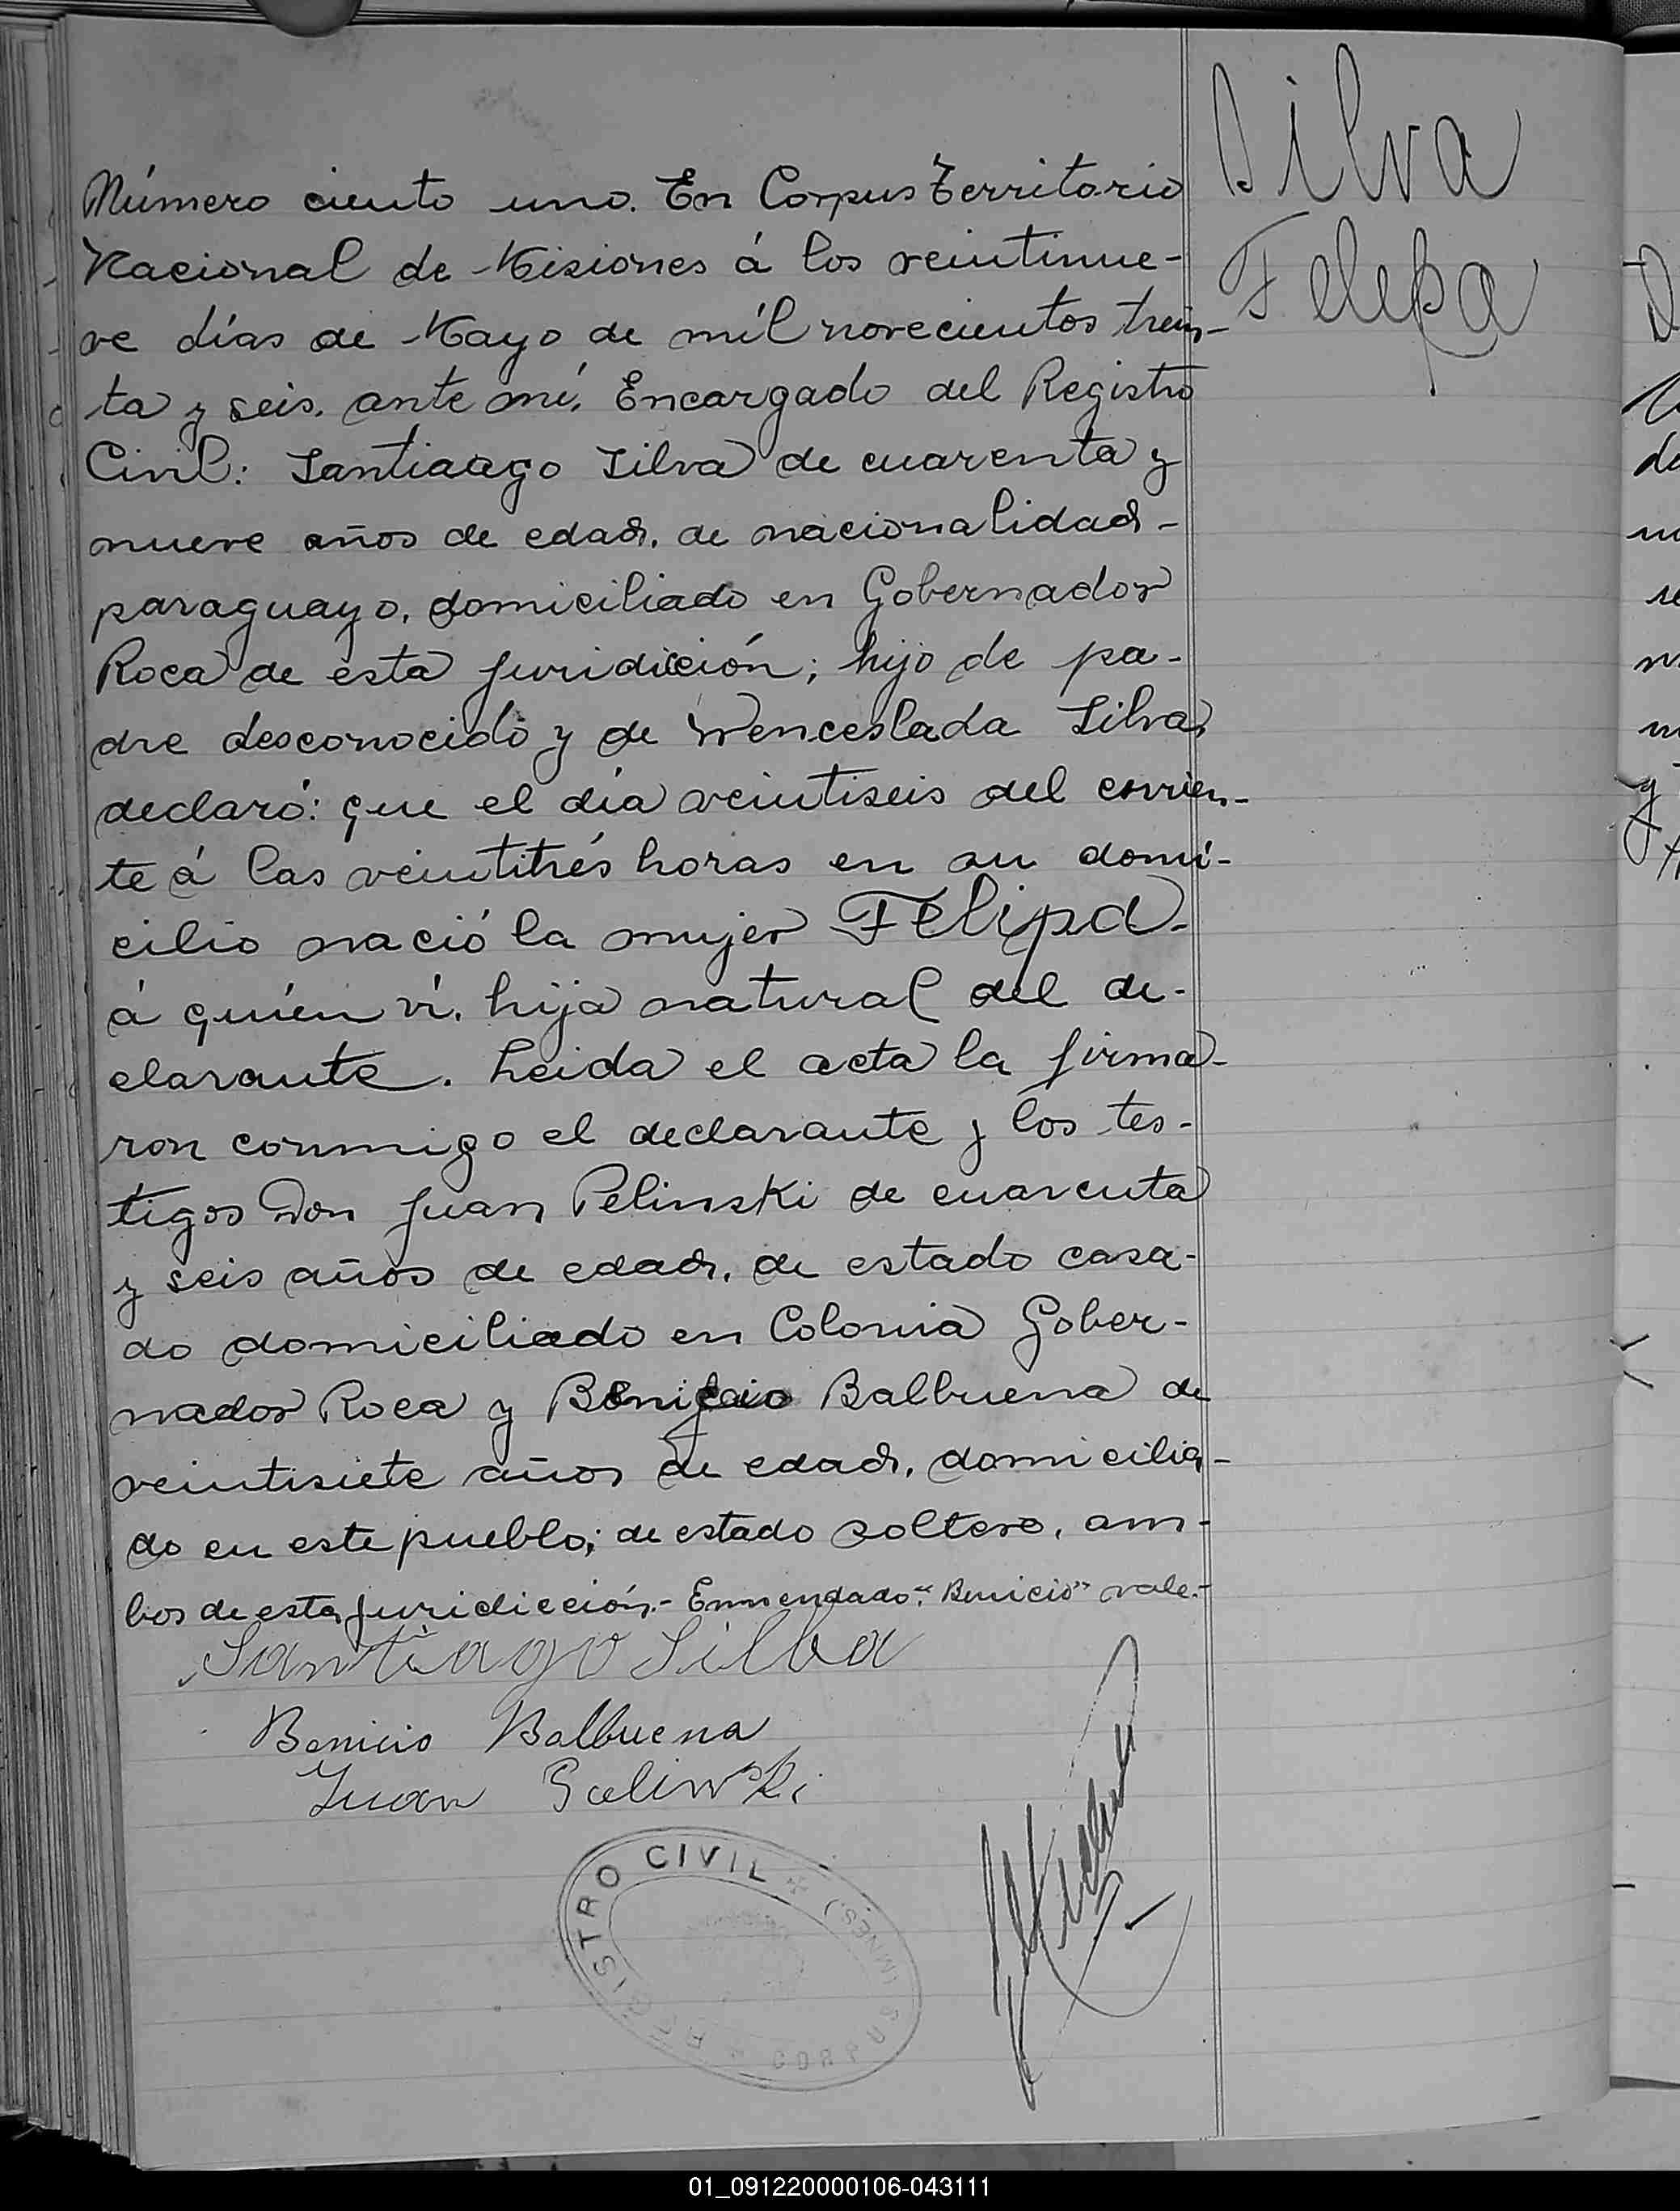 Silva
Felipa
Número ciento uno. En Corpus Territorio
Nacional de Misiones á los veintinue-
ve días de Mayo de míl novecientos trein-
ta y seis. ante mí, Encargado del Registro
Civil: Santiaago Silva de cuarenta y
nueve años de edad, de nacionalidad-
paraguayo, domiciliado en Gobernador
Roca de esta juridicción; hijo de pa-
dre desconocido y de Wenceslada Silva,
declaró: que el día veintiseis del corrien-
te á las veintitrés horas en su domi-
cilio nació la mujer Felipa-
á quién ví, hija natural del de-
clarante. Leida el acta la firma-
ron conmigo el declarante y los tes-
tigos Don Juan Pelinski de cuarenta
y seis años de edad, de estado casa-
do domiciliado en Colonia Gober-
nador Roca y Balbuena de
veintisiete años de edad, domicilia-
do en este pueblo; de estado soltero, am-
bos de esta juridicción.- Enmendado: "Benicio" vale.-
Santiago Silba
Benicio Balbuena
Juan
REGISTRO CIVIL
CORPUS (MNES.)
01_091220000106-043111